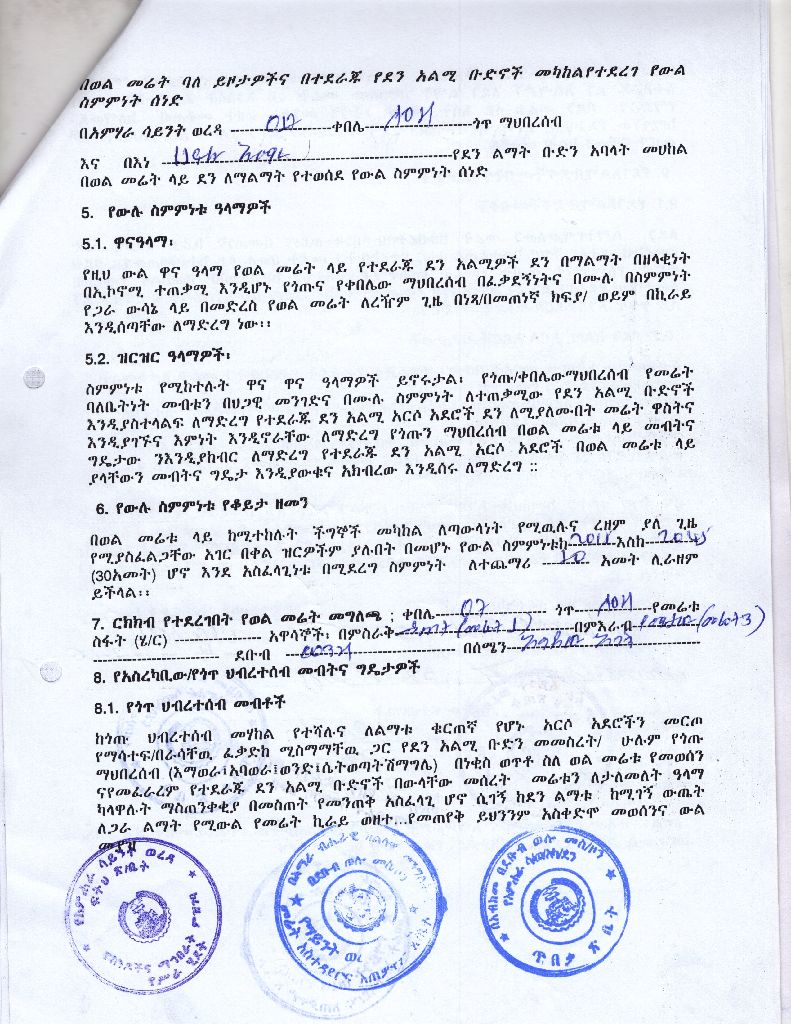 በወል መሬት ባለ ይዞታዎችና በተደራጁ የደን አልሚ ቡድኖች መካከልየተደረገ የውል
ስምምነት ሰነድ
በአምሃራ ሳይንት ወረዳ ---------------ቀበሌ---------------ጎጥ ማህበረሰብ
እና በእነ ---------------የደን ልማት ቡድን አባላት መሀከል
በወል መሬት ላይ ደን ለማልማት የተወሰደ የውል ስምምነት ሰነድ
5. የውሉ ስምምነቱ ዓላማዎች
5.1. ዋናዓላማ፡
የዚህ ውል ዋና ዓላማ የወል መሬት ላይ የተደራጁ ደን አልሚዎች ደን በማልማት በዘላቂነት
በኢኮኖሚ ተጠቃሚ እንዲሆኑ የጎጡና የቀበሌው ማህበረሰብ በፈቃደኝነትና በሙሉ በስምምነት
የጋራ ውሳኔ ላይ በመድረስ የወል መሬት ለረዥም ጊዜ በነጻ/በመጠነኛ ክፍያ/ ወይም በኪራይ
እንዲሰጣቸው ለማድረግ ነው፡፡
5.2. ዝርዝር ዓላማዎች፡
ስምምነቱ የሚከተሉት ዋና ዋና ዓላማዎች ይኖሩታል፡ የጎጡ/ቀበሌውማህበረሰብ የመሬት
ባለቤትነት መብቱን በህጋዊ መንገድና በሙሉ ስምምነት ለተጠቃሚው የደን አልሚ ቡድኖች
እንዲያስተላልፍ ለማድረግ የተደራጁ ደን አልሚ አርሶ አደሮች ደን ለሚያለሙበት መሬት ዋስትና
እንዲያገኙና እምነት እንዲኖራቸው ለማድረግ የጎጡን ማህበረሰብ በወል መሬቱ ላይ መብትና
ግዴታው ንእንዲያከብር ለማድረግ የተደራጁ ደን አልሚ አርሶ አደሮች በወል መሬቱ ላይ
ያላቸውን መብትና ግዴታ እንዲያውቁና አክብረው እንዲሰሩ ለማድረግ ፡፡
6. የውሉ ስምምነቱ የቆይታ ዘመን
በወል መሬቱ ላይ ከሚተከሉት ችግኞች መካከል ለጣውላነት የሚዉሉና ረዘም ያለ ጊዜ
የሚያስፈልጋቸው አገር በቀል ዝርዎችም ያሉበት በመሆኑ የውል ስምምነቱከ--------እስከ--------
(30አመት) ሆኖ እንደ አስፈላጊነቱ በሚደረግ ስምምነት ለተጨማሪ 10 አመት ሊራዘም
ይችላል፡፡
7. ርክክብ የተደረገበት የወል መሬት መግለጫ ፡ ቀበሌ 07 ጎጥ ---------የመሬቱ
ስፋት (ሄ/ር) ---------------- አዋሳኞች፡ በምስራቅ---------------በምእራብ
---------------- ደቡብ ---------------- በሰሜን----------------
8. የአስረካቢው/የጎጥ ህብረተሰብ መብትና ግዴታዎች
8.1. የጎጥ ህብረተሰብ መብቶች
ከጎጡ ህብረተሰብ መሃከል የተሻሉና ለልማቱ ቁርጠኛ የሆኑ አርሶ አደሮችን መርጦ
የማሳተፍ/በራሳቸዉ ፈቃድከ ሚስማማቸዉ ጋር የደን አልሚ ቡድን መመስረት/ ሁሉም የጎጡ
ማህበረሰብ (እማወራ፣አባወራ፣ወንድ፣ሴትወጣትሽማግሌ) በነቂስ ወጥቶ ስለ ወል መሬቱ የመወሰን
ናየመፈራረም የተደራጁ ደን አልሚ ቡድኖች በውላቸው መሰረት መሬቱን ለታለመለት ዓላማ
ካላዋሉት ማስጠንቀቂያ በመስጠት የመንጠቅ አስፈላጊ ሆኖ ሲገኝ ከደን ልማቱ ከሚገኝ ውጤት
ለጋራ ልማት የሚውል የመሬት ኪራይ ወዘተ...የመጠየቅ ይህንንም አስቀድሞ መወሰንና ውል
የአምሐራ ሳይንት ወረዳ
ፍትህ ጽ/ቤት
በደቡብ ወሎ መስተዳድር
ጥበቃ ጽ/ቤት